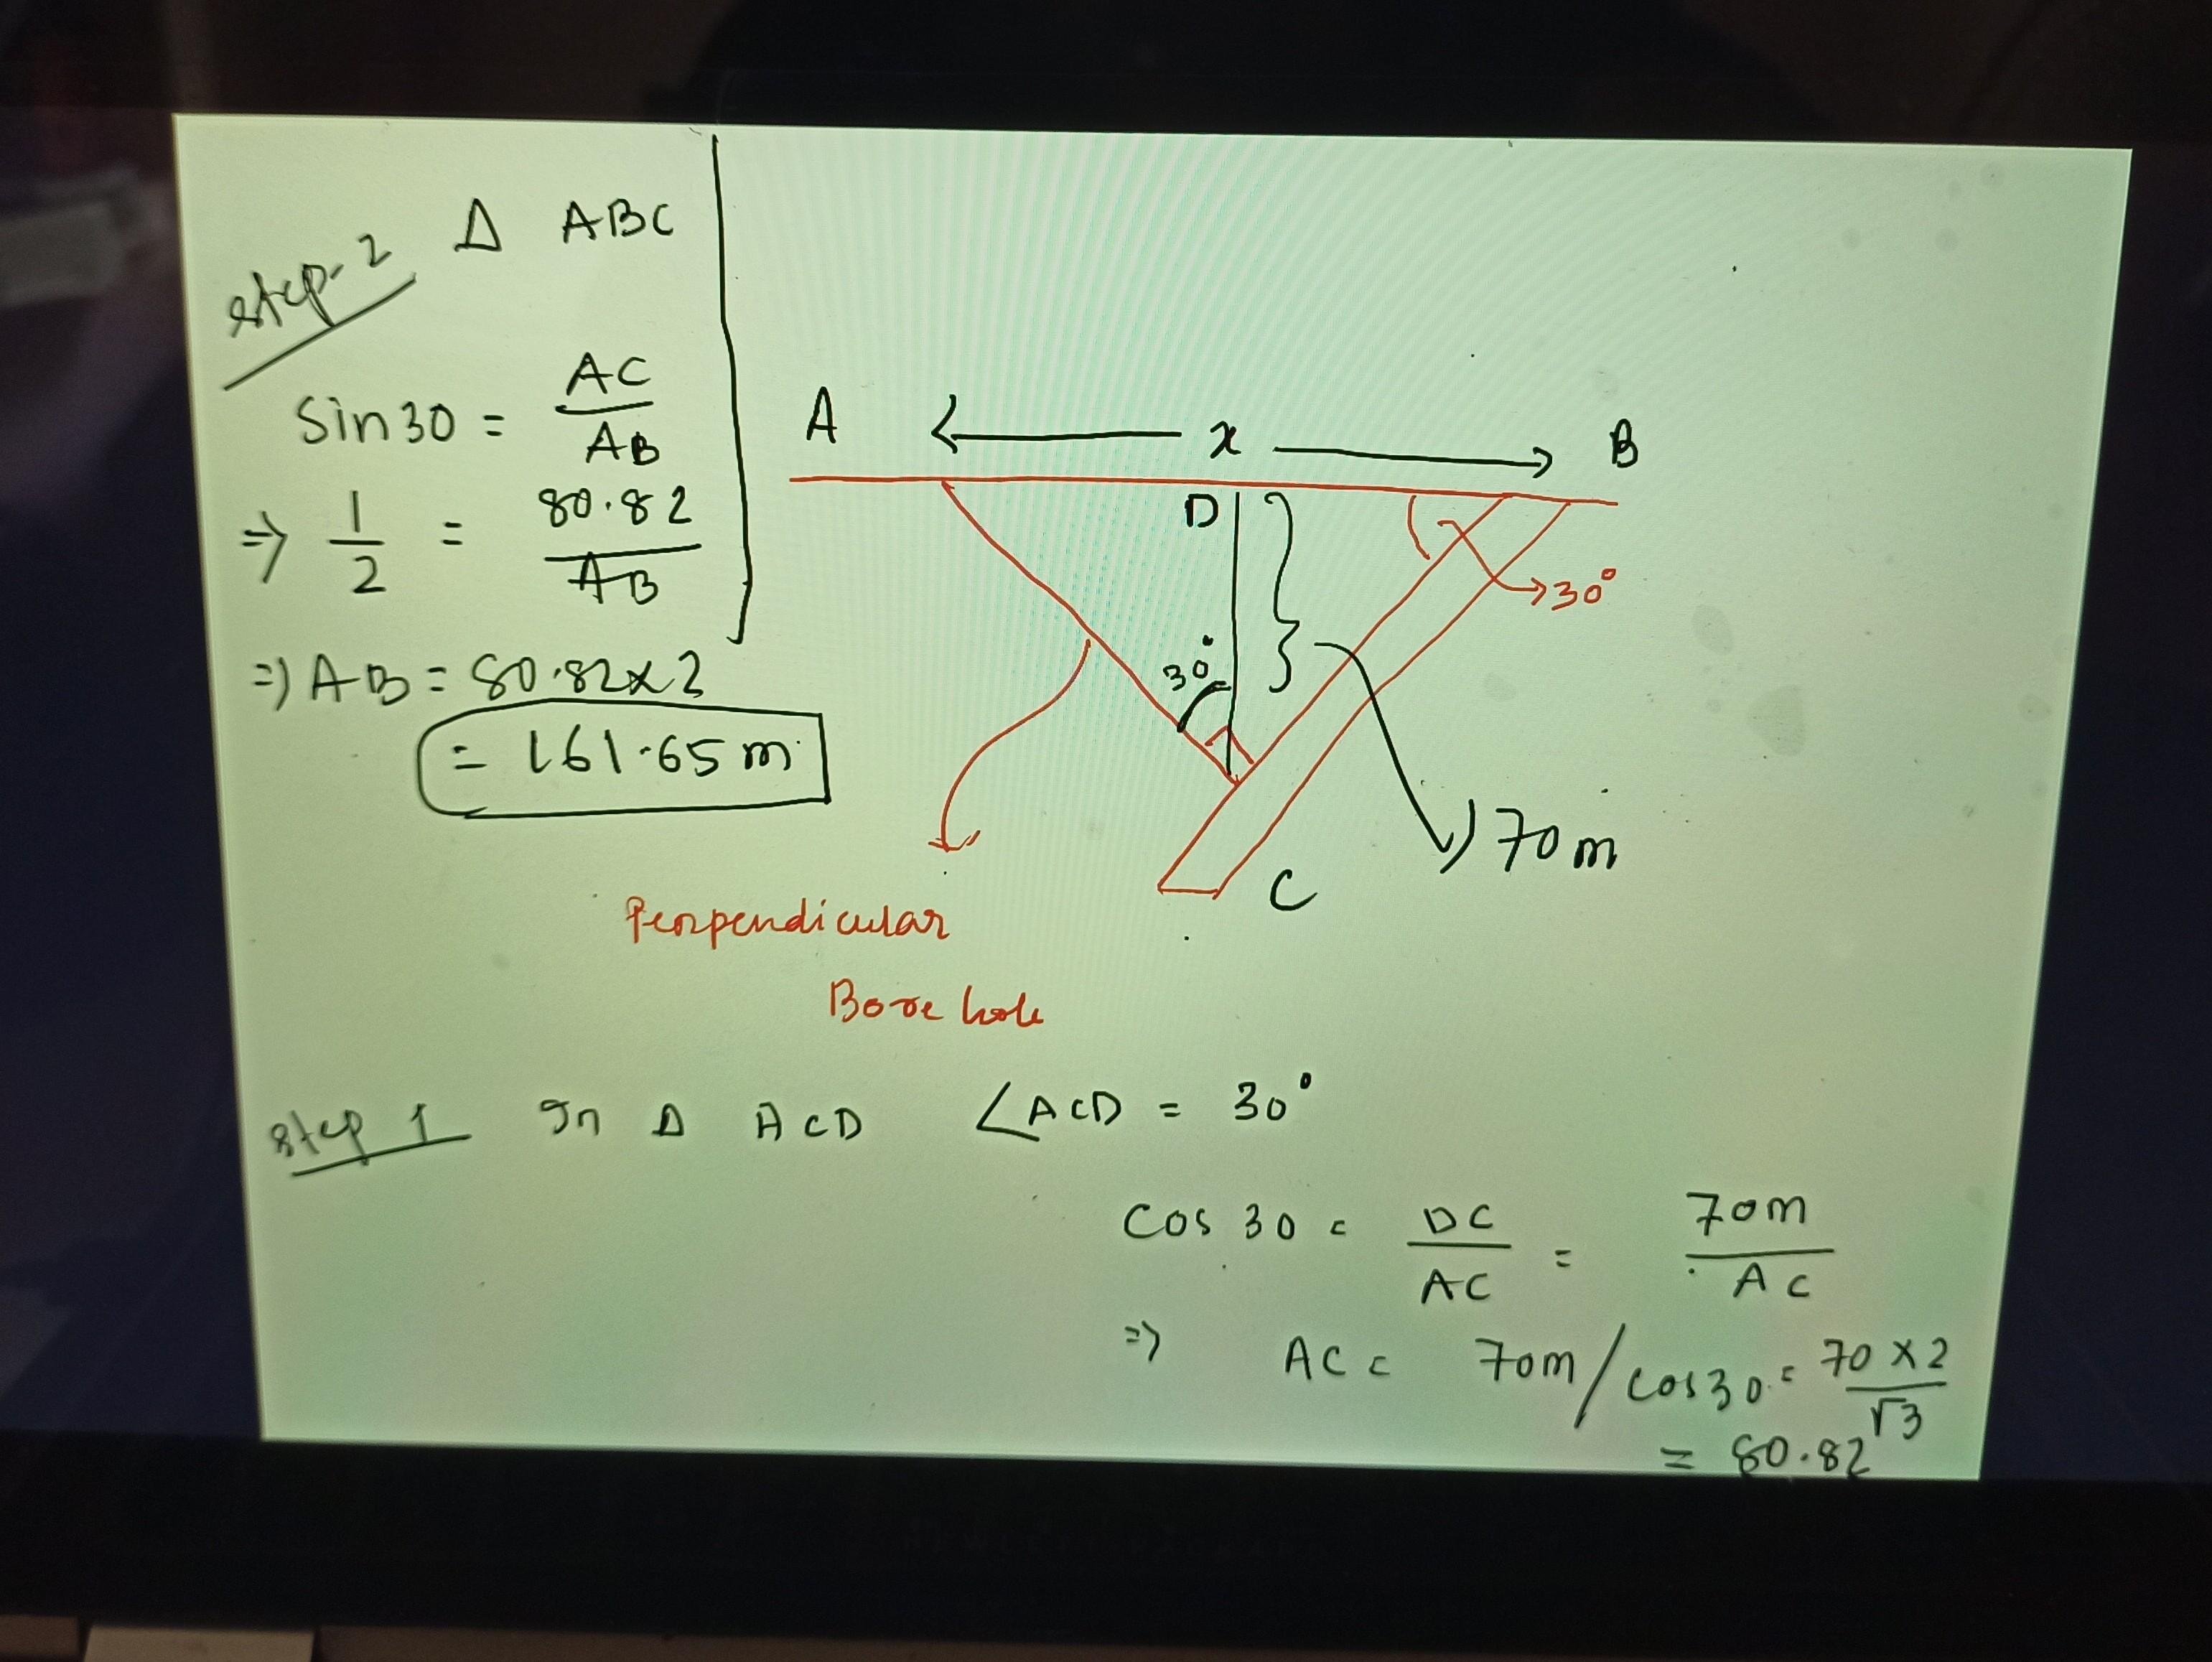 step-2 Δ ABC
Sin 30 = AC / AB
=> 1/2 = 80.82 / AB
=) AB = 80.82x2
= 161.65 m
A <—— x ——> B
D
30°
30°
70 m
C
Perpendicular
Bore hole
step 1 In Δ ACD ∠ACD = 30°
Cos 30 = DC / AC = 70m / AC
=> AC = 70m / cos30 = 70 x 2 / √3
= 80.82